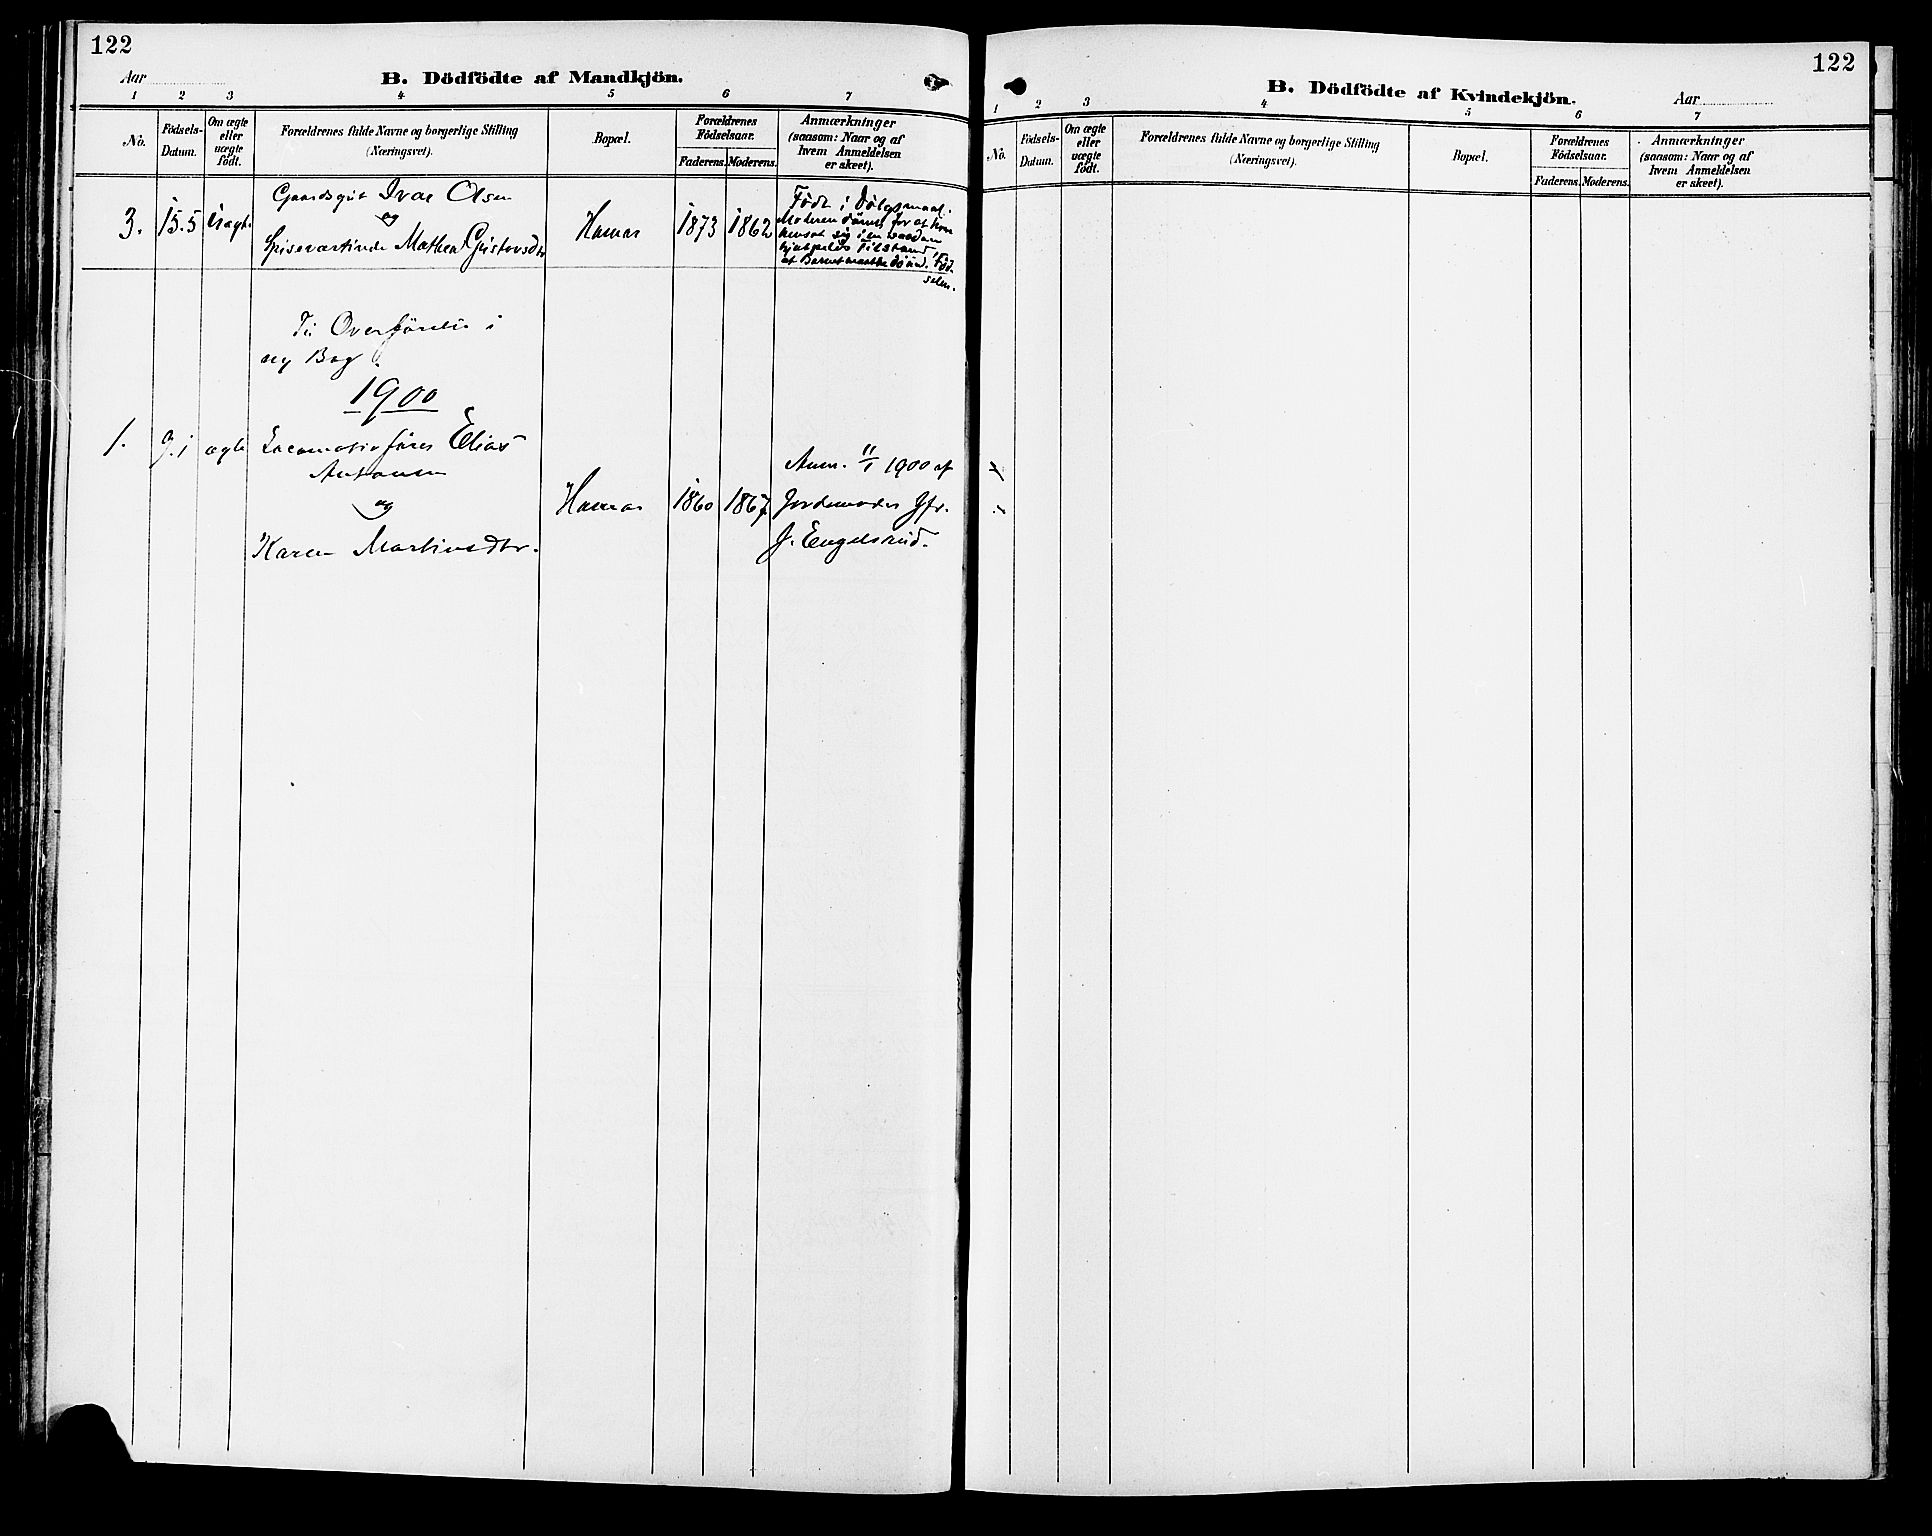 122
Aar
B. Dödfödte af Mandkjön.
1 2 3 4 5 6 7
No.
Födsels-
Datum.
Om ægte
eller
uægte
födt.
Forældrenes fulde Navne og borgerlige Stilling
(Næringsvei).
Bopæl.
Forældrenes
Födselsaar.
Faderens. Moderens.
Anmærkninger
(saasom: Naar og af
hvem Anmeldelsen
er skeet).
3. 15.5 Uægte
Gaardsgut Ivar Olsen
og
Spiseværtinde Mathea Gustavsdtr
Hamar 1873 1862
Födt i Dölgsmaal.
Moderen dömt for at have
hensat sig i en saadan
hjælpelös Tilstand,
at Barnet maatte dö ved Föd-
selen.
Til Overförelse i
ny Bog.
1900
1. 9.1 ægte
Locomotivförer Elias
Antonsen
og
Karen Martinsdtr.
Hamar 1860 1867
Anm. 11/1 1900 af
Jordemoder Jfr.
J. Engelsrud.
122
B. Dödfödte af Kvindekjön.
Aar
1 2 3 4 5 6 7
No.
Födsels-
Datum.
Om ægte
eller
uægte
födt.
Forældrenes fulde Navne og borgerlige Stilling
(Næringsvei).
Bopæl.
Forældrenes
Födselsaar.
Faderens. Moderens.
Anmærkninger
(saasom: Naar og af
hvem Anmeldelsen
er skeet).